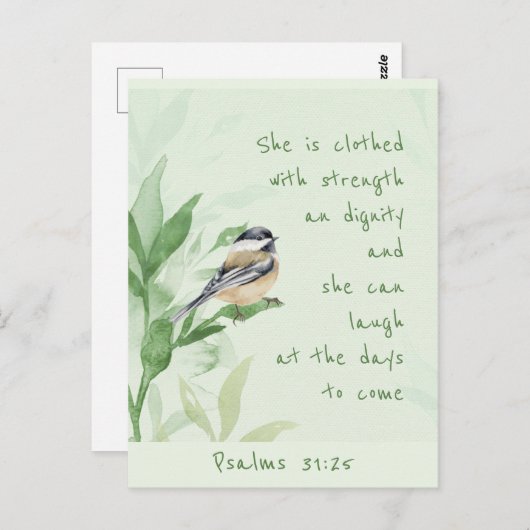 zzle
She is clothed
with strength
an dignity
and
she can
laugh
at the days
to come
Psalms 31:25